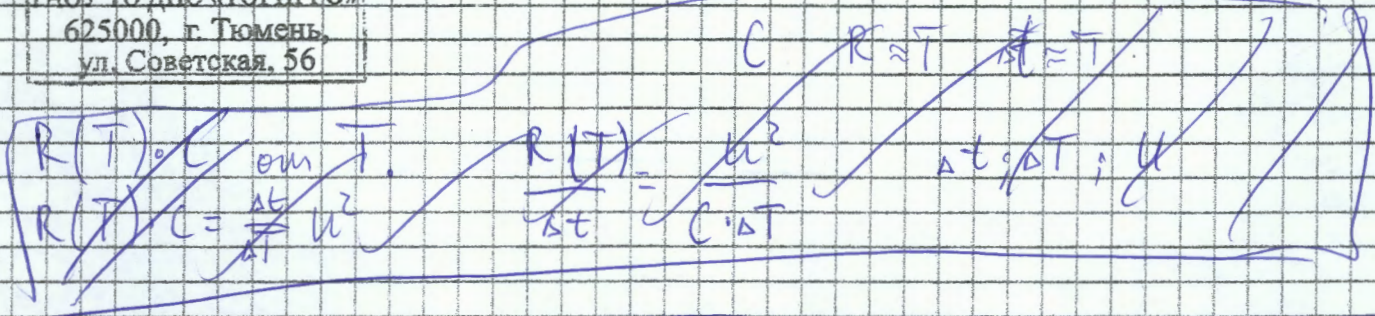 625000, г. Тюмень,
ул. Советская, 56
C R ≈ T Δt ≈ T
R(T) · C от T. R(T)/Δt = U²/(C·ΔT) Δt ; ΔT ; U
R(T) C = Δt/ΔT U²